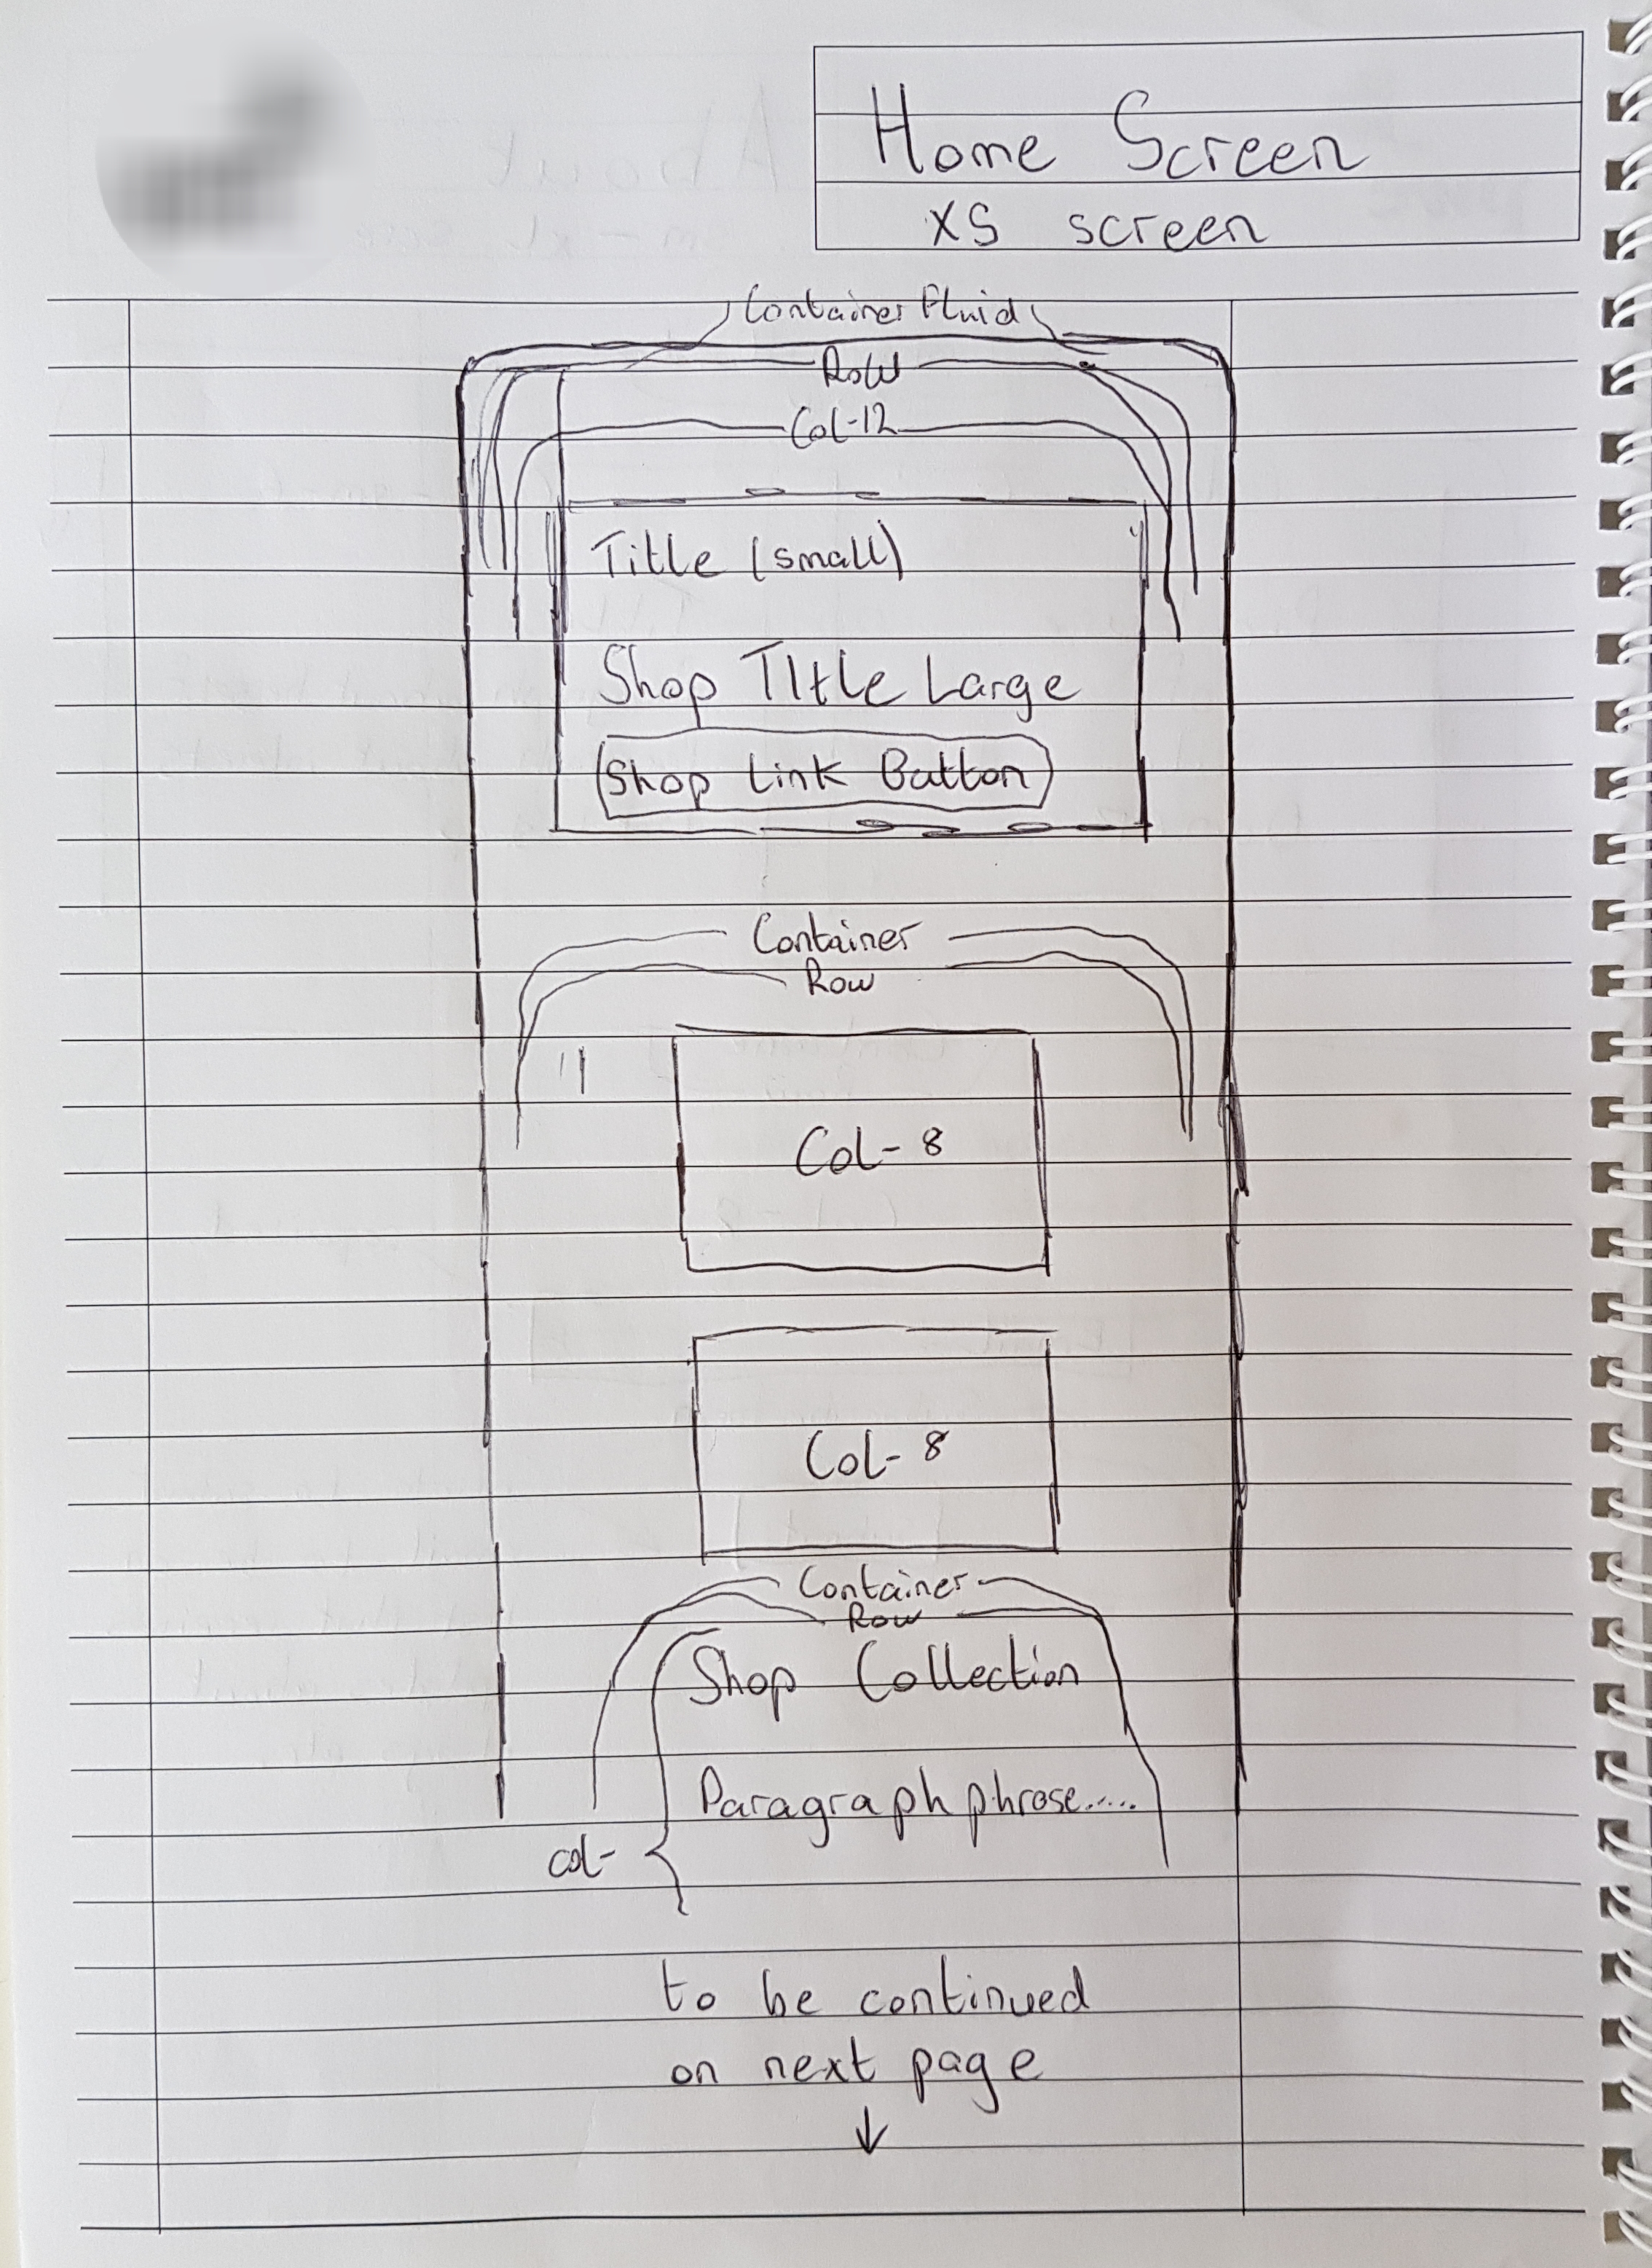 Home Screen
XS screen
Container Fluid
Row
Col-12
Title (small)
Shop TItle Large
Shop Link Button
Container
Row
Col- 8
Col- 8
Container
Row
Shop Collection
Paragraph phrase.....
col-
to be continued
on next page